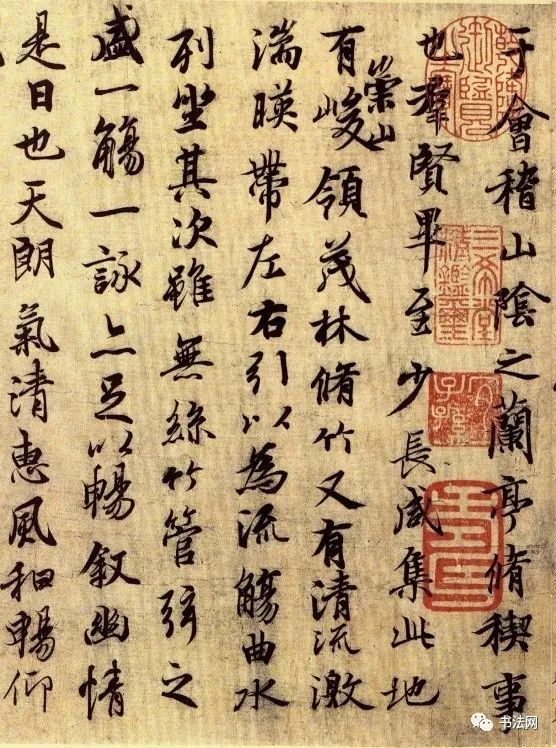 于會稽山陰之蘭亭脩稧事
也羣賢畢至少長咸集此地
有崇山峻領茂林脩竹又有清流激
湍暎帶左右引以為流觴曲水
列坐其次雖無絲竹管弦之
盛一觴一詠亦足以暢敘幽情
是日也天朗氣清惠風和暢仰
三希堂精鑑璽
宜子孫
书法网